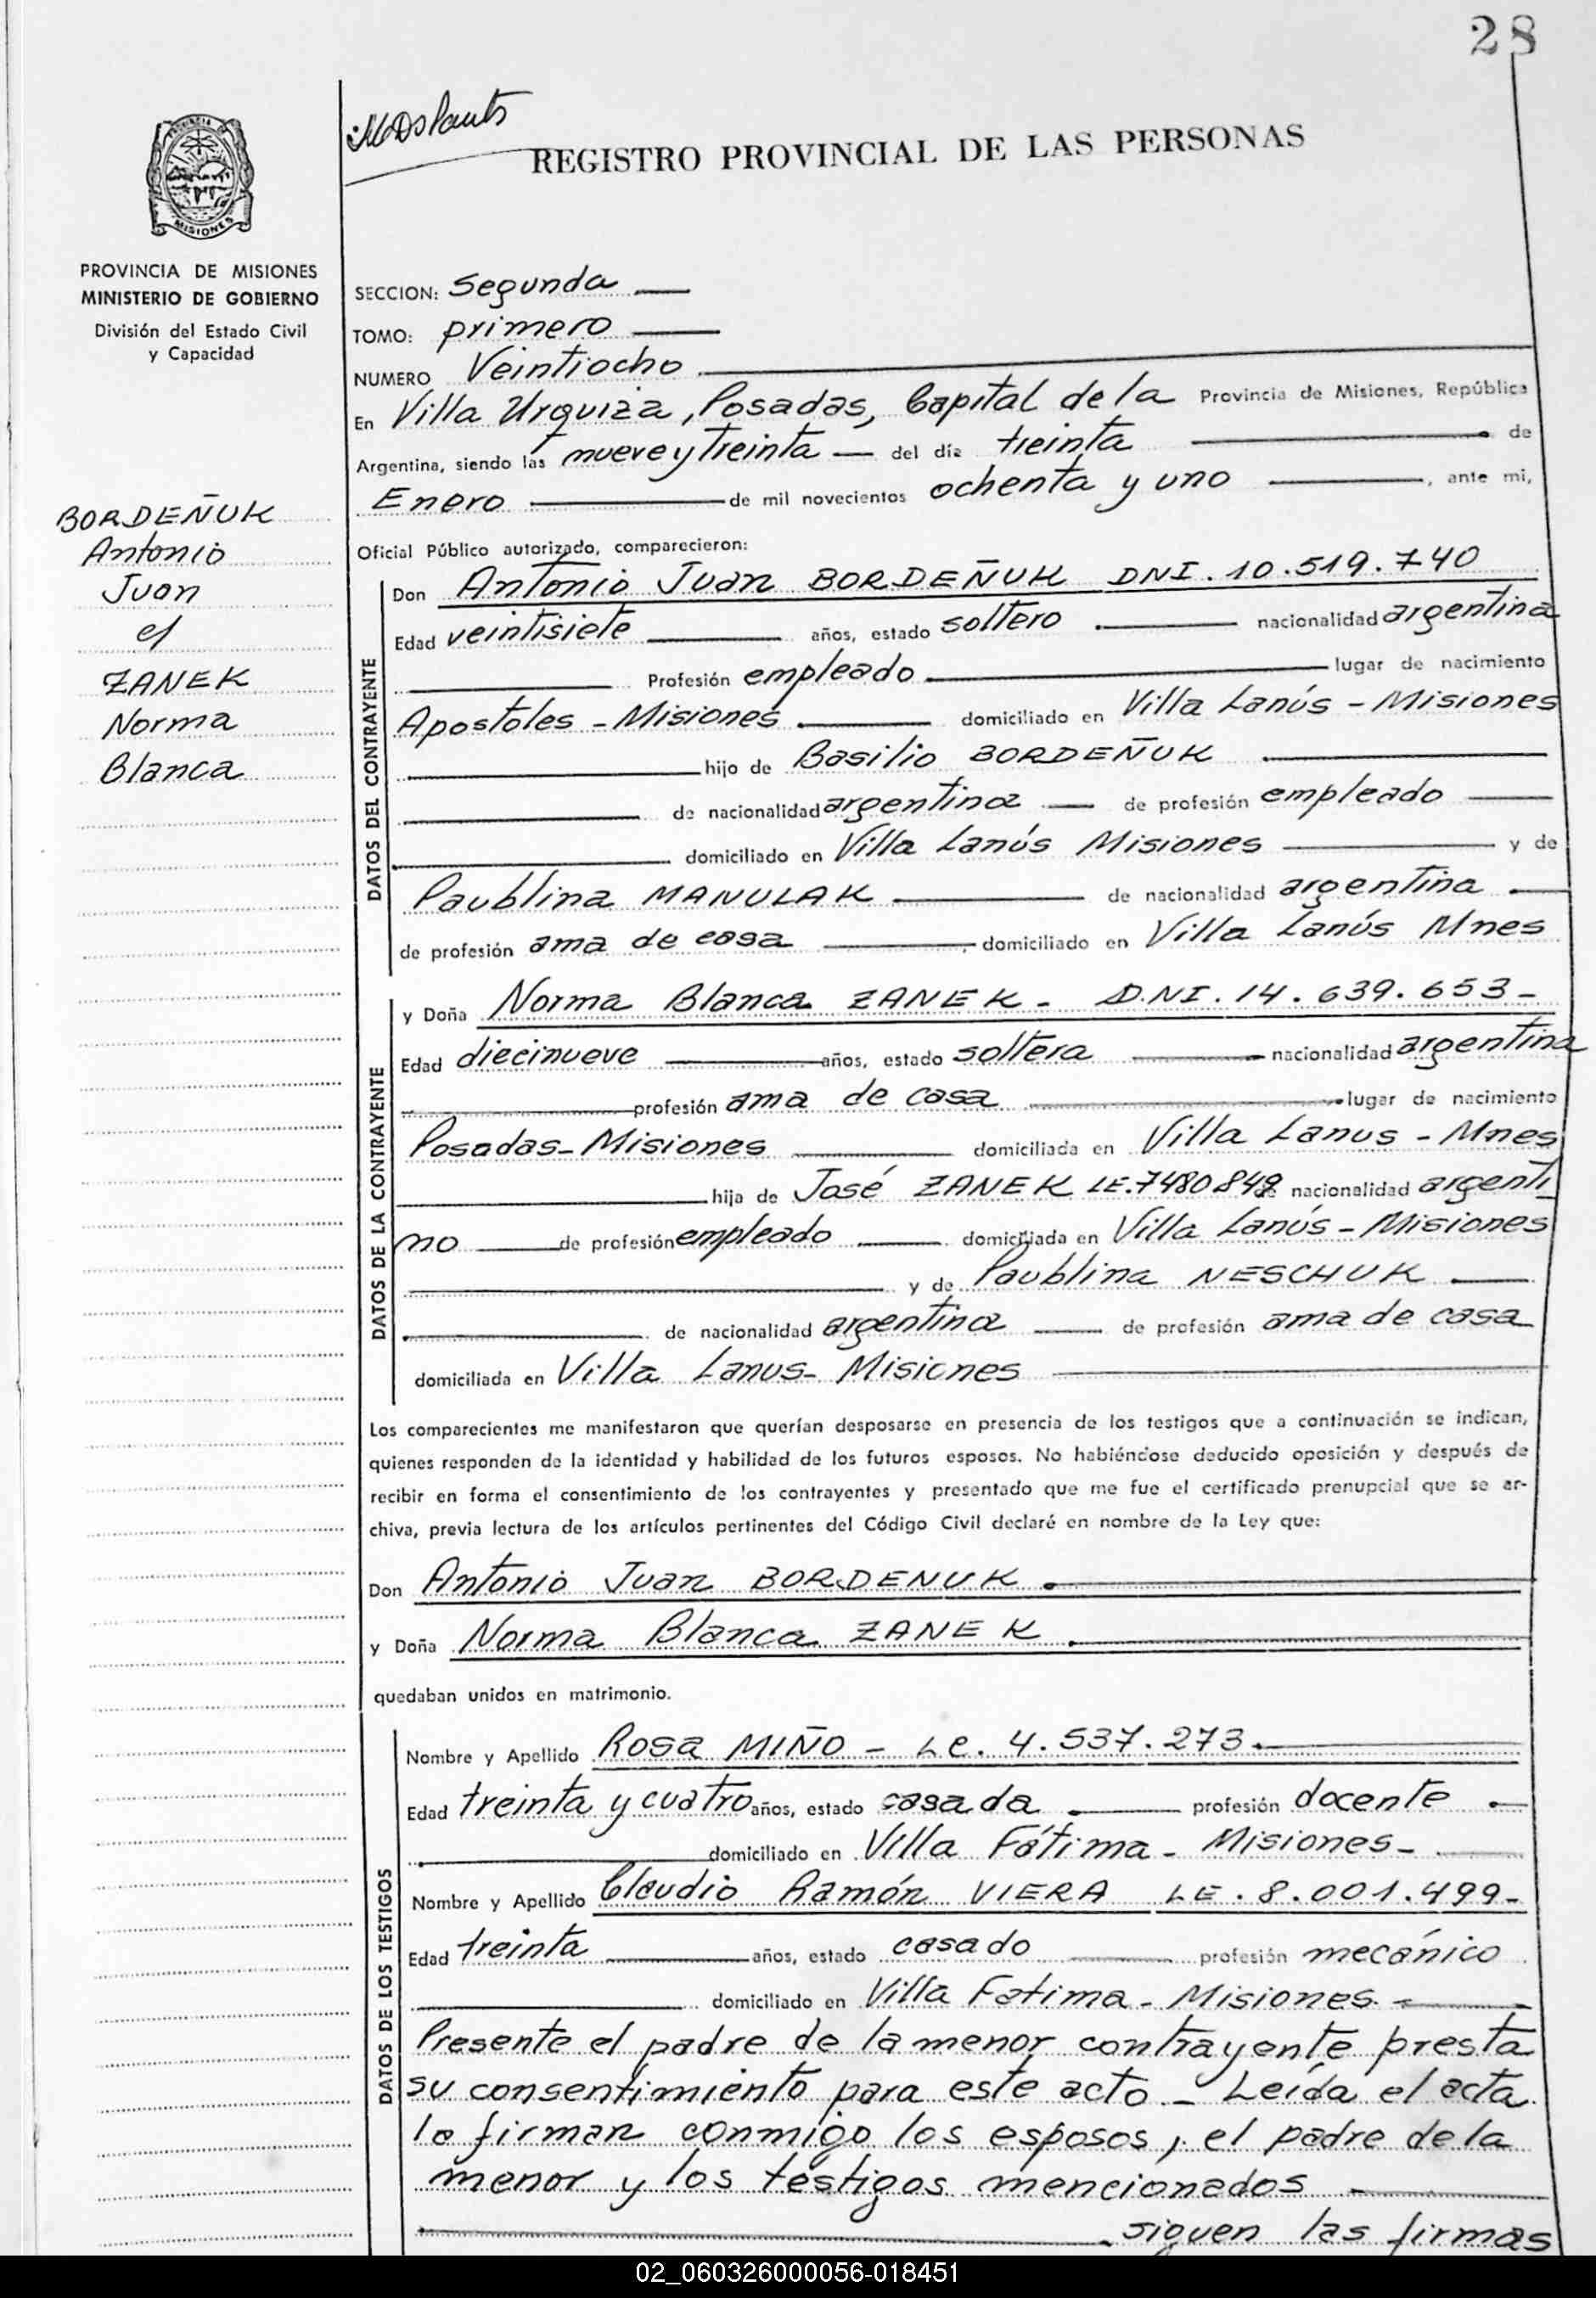 28
REGISTRO PROVINCIAL DE LAS PERSONAS
MISIONES
PROVINCIA DE MISIONES
MINISTERIO DE GOBIERNO
División del Estado Civil
y Capacidad
BORDEÑUK
Antonio
Juan
ZANEK
Norma
Blanca
SECCION: Segunda
TOMO: primero
NUMERO Veintiocho
En Villa Urquiza, Posadas, Capital de la Provincia de Misiones, República
Argentina, siendo las nueve y treinta del día treinta de
Enero de mil novecientos ochenta y uno, ante mi,
Oficial Público autorizado, comparecieron:
DATOS DEL CONTRAYENTE
Don Antonio Juan BORDEÑUK DNI. 10.519.740
Edad veintisiete años, estado soltero nacionalidad argentina
Profesión empleado lugar de nacimiento
Apostoles - Misiones domiciliado en Villa Lanús - Misiones
hijo de Basilio BORDEÑUK
de nacionalidad argentina de profesión empleado
domiciliado en Villa Lanús Misiones y de
Paublina MANULAK de nacionalidad argentina
de profesión ama de casa domiciliado en Villa Lanús Mnes
DATOS DE LA CONTRAYENTE
y Doña Norma Blanca ZANEK - D.NI. 14.639.653-
Edad diecinueve años, estado soltera nacionalidad argentina
profesión ama de casa lugar de nacimiento
Posadas-Misiones domiciliada en Villa Lanus - Mnes
hija de José ZANEK LE.7480849 de nacionalidad argenti
no de profesión empleado domiciliada en Villa Lanús - Misiones
y de Paublina NESCHUK
de nacionalidad argentina de profesión ama de casa
domiciliada en Villa Lanus- Misiones
Los comparecientes me manifestaron que querían desposarse en presencia de los testigos que a continuación se indican,
quienes responden de la identidad y habilidad de los futuros esposos. No habiéndose deducido oposición y después de
recibir en forma el consentimiento de los contrayentes y presentado que me fue el certificado prenupcial que se ar-
chiva, previa lectura de los artículos pertinentes del Código Civil declaré en nombre de la Ley que:
Don Antonio Juan BORDENUK
y Doña Norma Blanca ZANEK
quedaban unidos en matrimonio.
DATOS DE LOS TESTIGOS
Nombre y Apellido Rosa MIÑO - Le. 4.537.273.
Edad treinta y cuatro años, estado casada profesión docente
domiciliado en Villa Fátima - Misiones-
Nombre y Apellido Claudio Ramón VIERA LE. 8.001.499-
Edad treinta años, estado casado profesión mecánico
domiciliado en Villa Fatima - Misiones.
Presente el padre de la menor contrayente presta
su consentimiento para este acto - Leída el acta
la firman conmigo los esposos, el padre de la
menor y los testigos mencionados
siguen las firmas
02_060326000056-018451